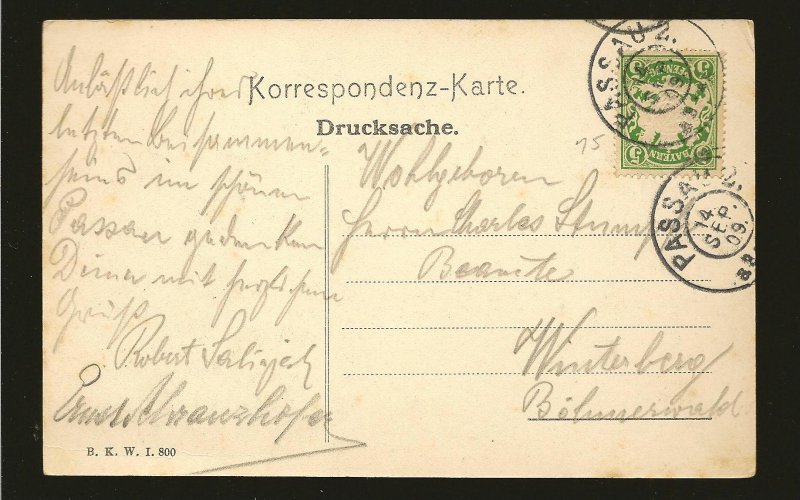 Korrespondenz-Karte.
Drucksache.
Anläßlich ihres
letzten Beisammen=
seins im schönen
Passau gedenken
Deiner mit herzlichem
Gruß
Robert
Ernst
B. K. W. I. 800
15
Wohlgeboren
Herrn Charles Stumpf
Beamte
Winterberg
Böhmerwald
5 5
BAYERN
PASSAU 2.
PASSAU
14
SEP.
09